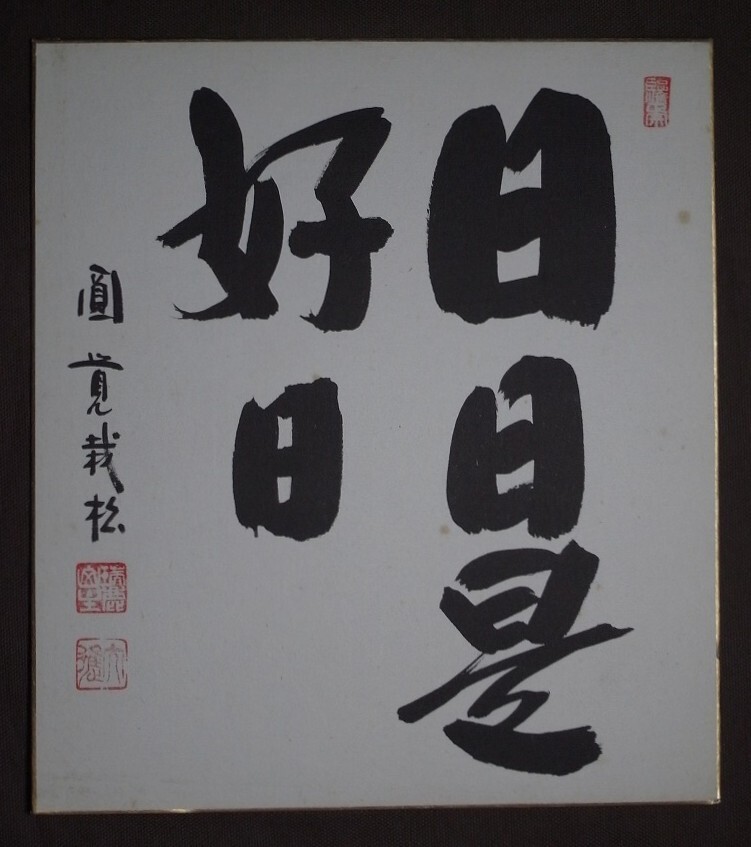 日日是
好日
圓覚栽松